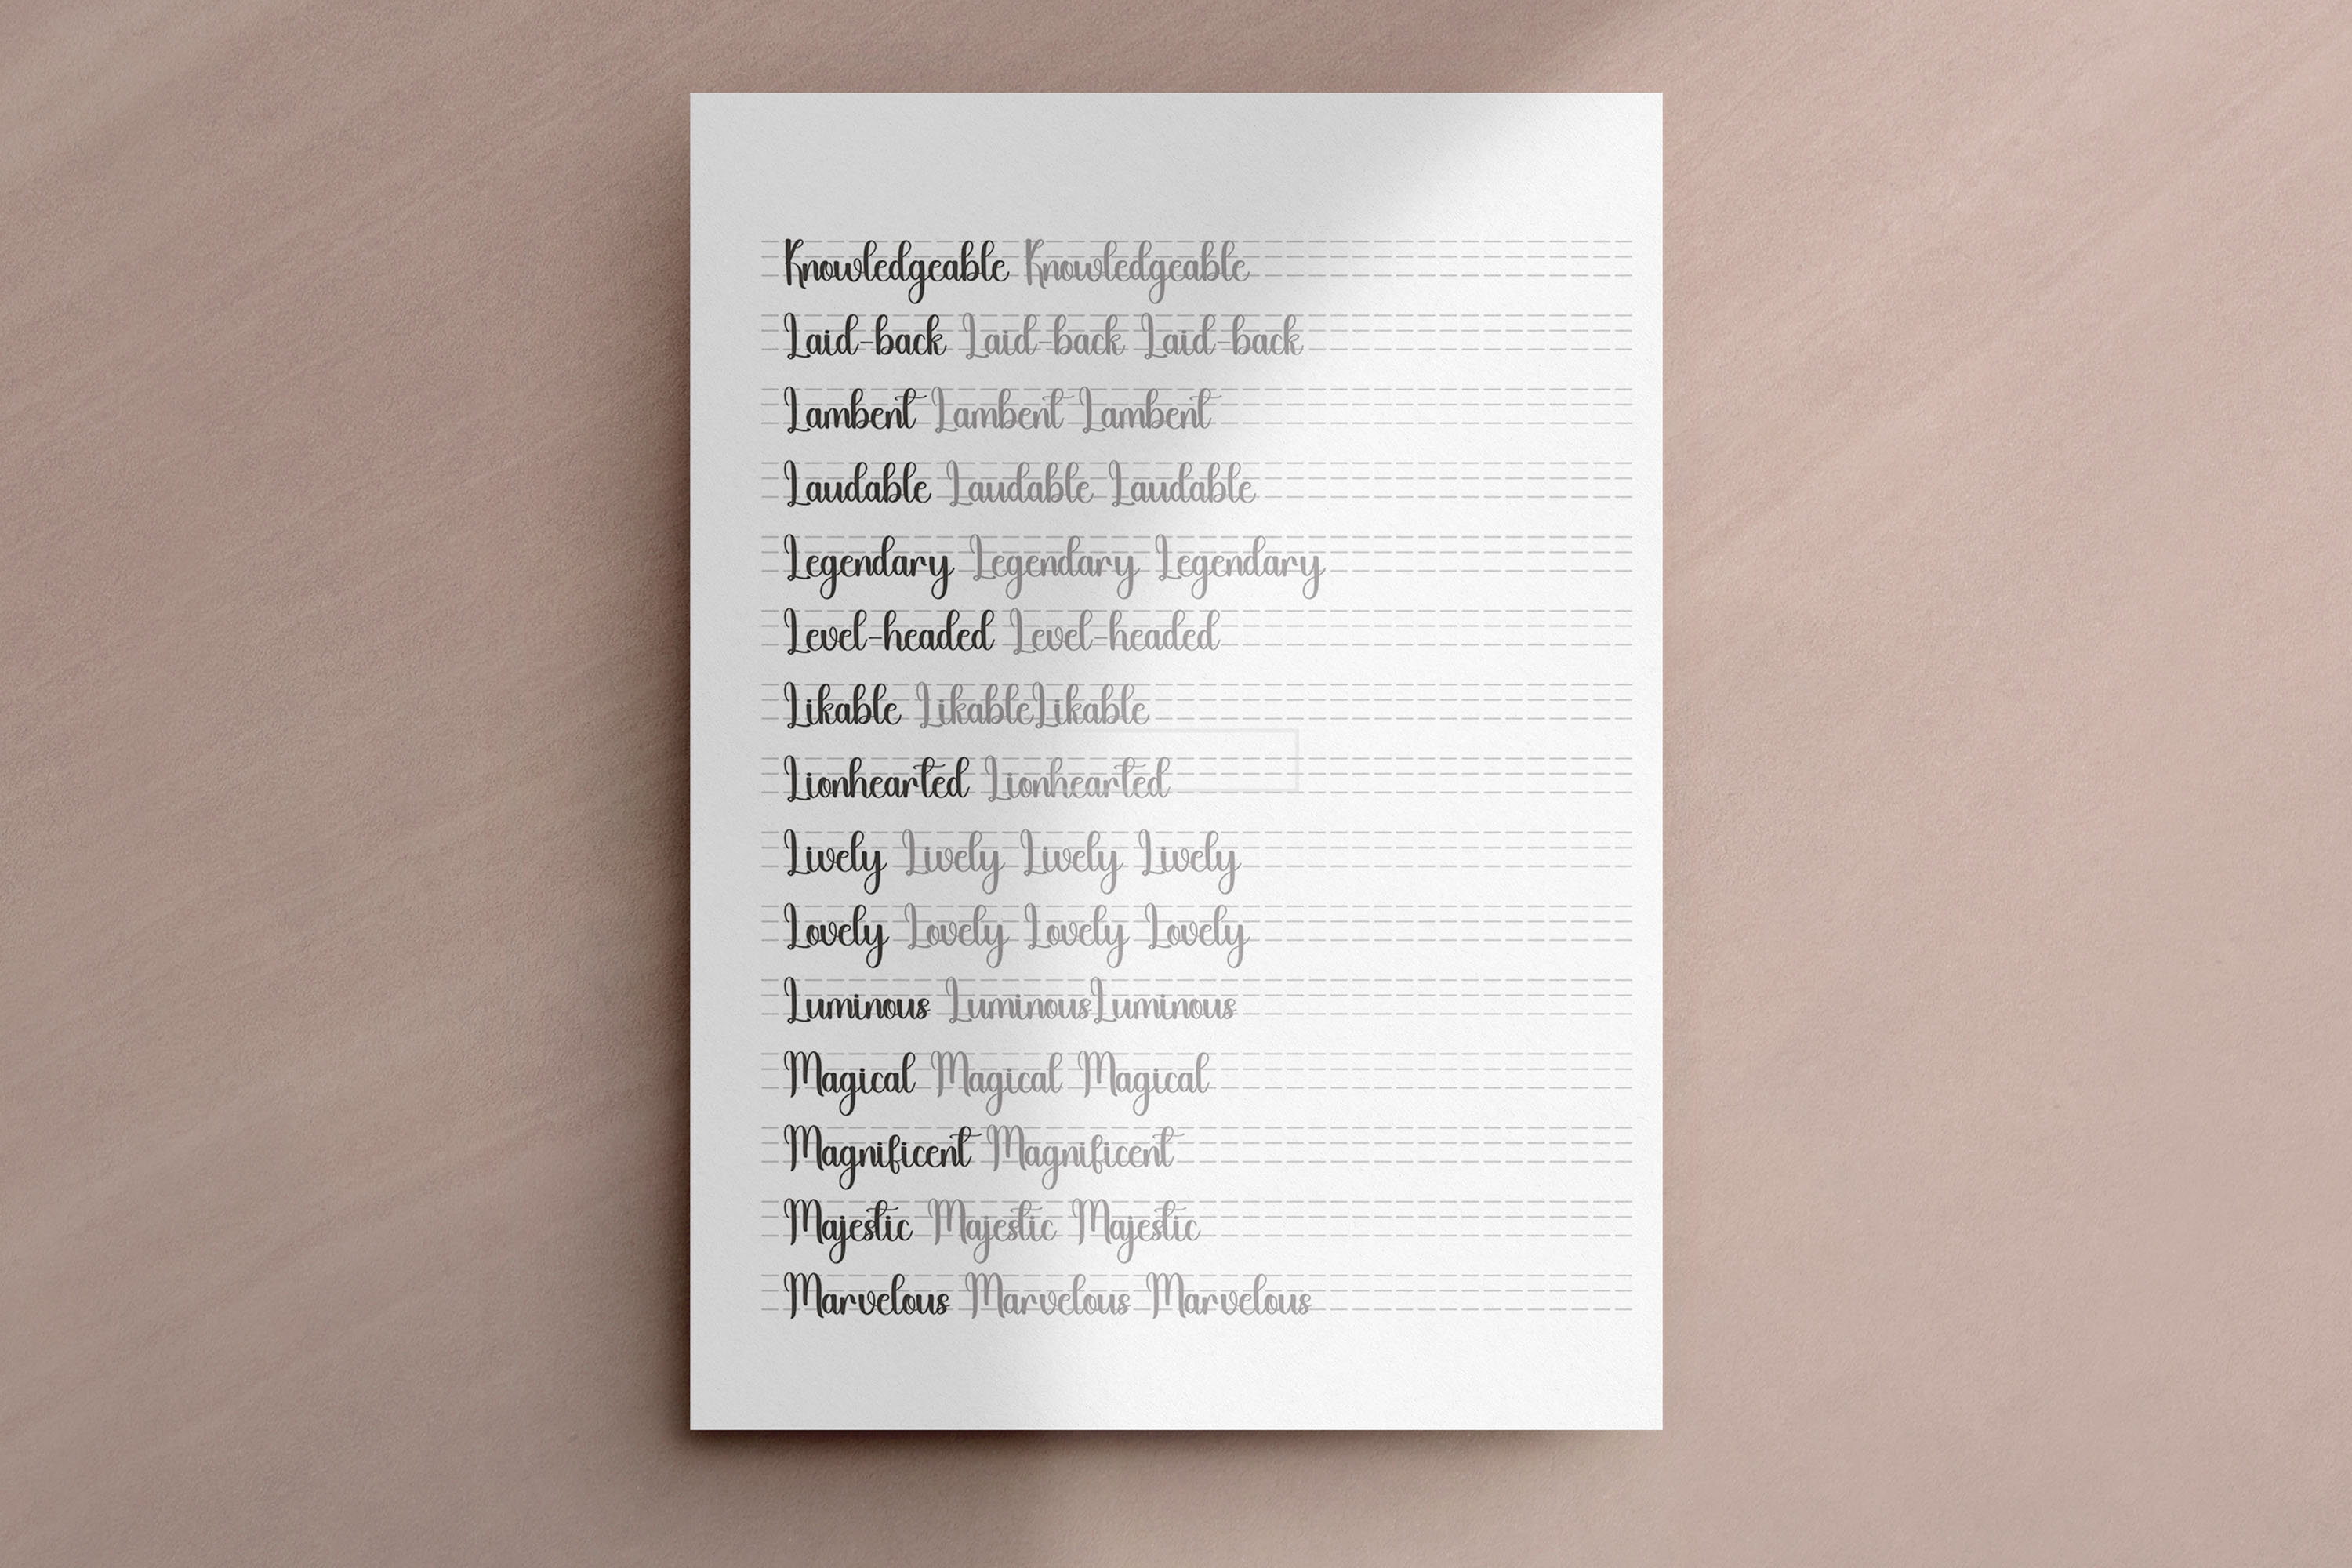 Knowledgeable Knowledgeable
Laid-back Laid-back Laid-back
Lambent Lambent Lambent
Laudable Laudable Laudable
Legendary Legendary Legendary
Level-headed Level-headed
Likable LikableLikable
Lionhearted Lionhearted
Lively Lively Lively Lively
Lovely Lovely Lovely Lovely
Luminous LuminousLuminous
Magical Magical Magical
Magnificent Magnificent
Majestic Majestic Majestic
Marvelous Marvelous Marvelous